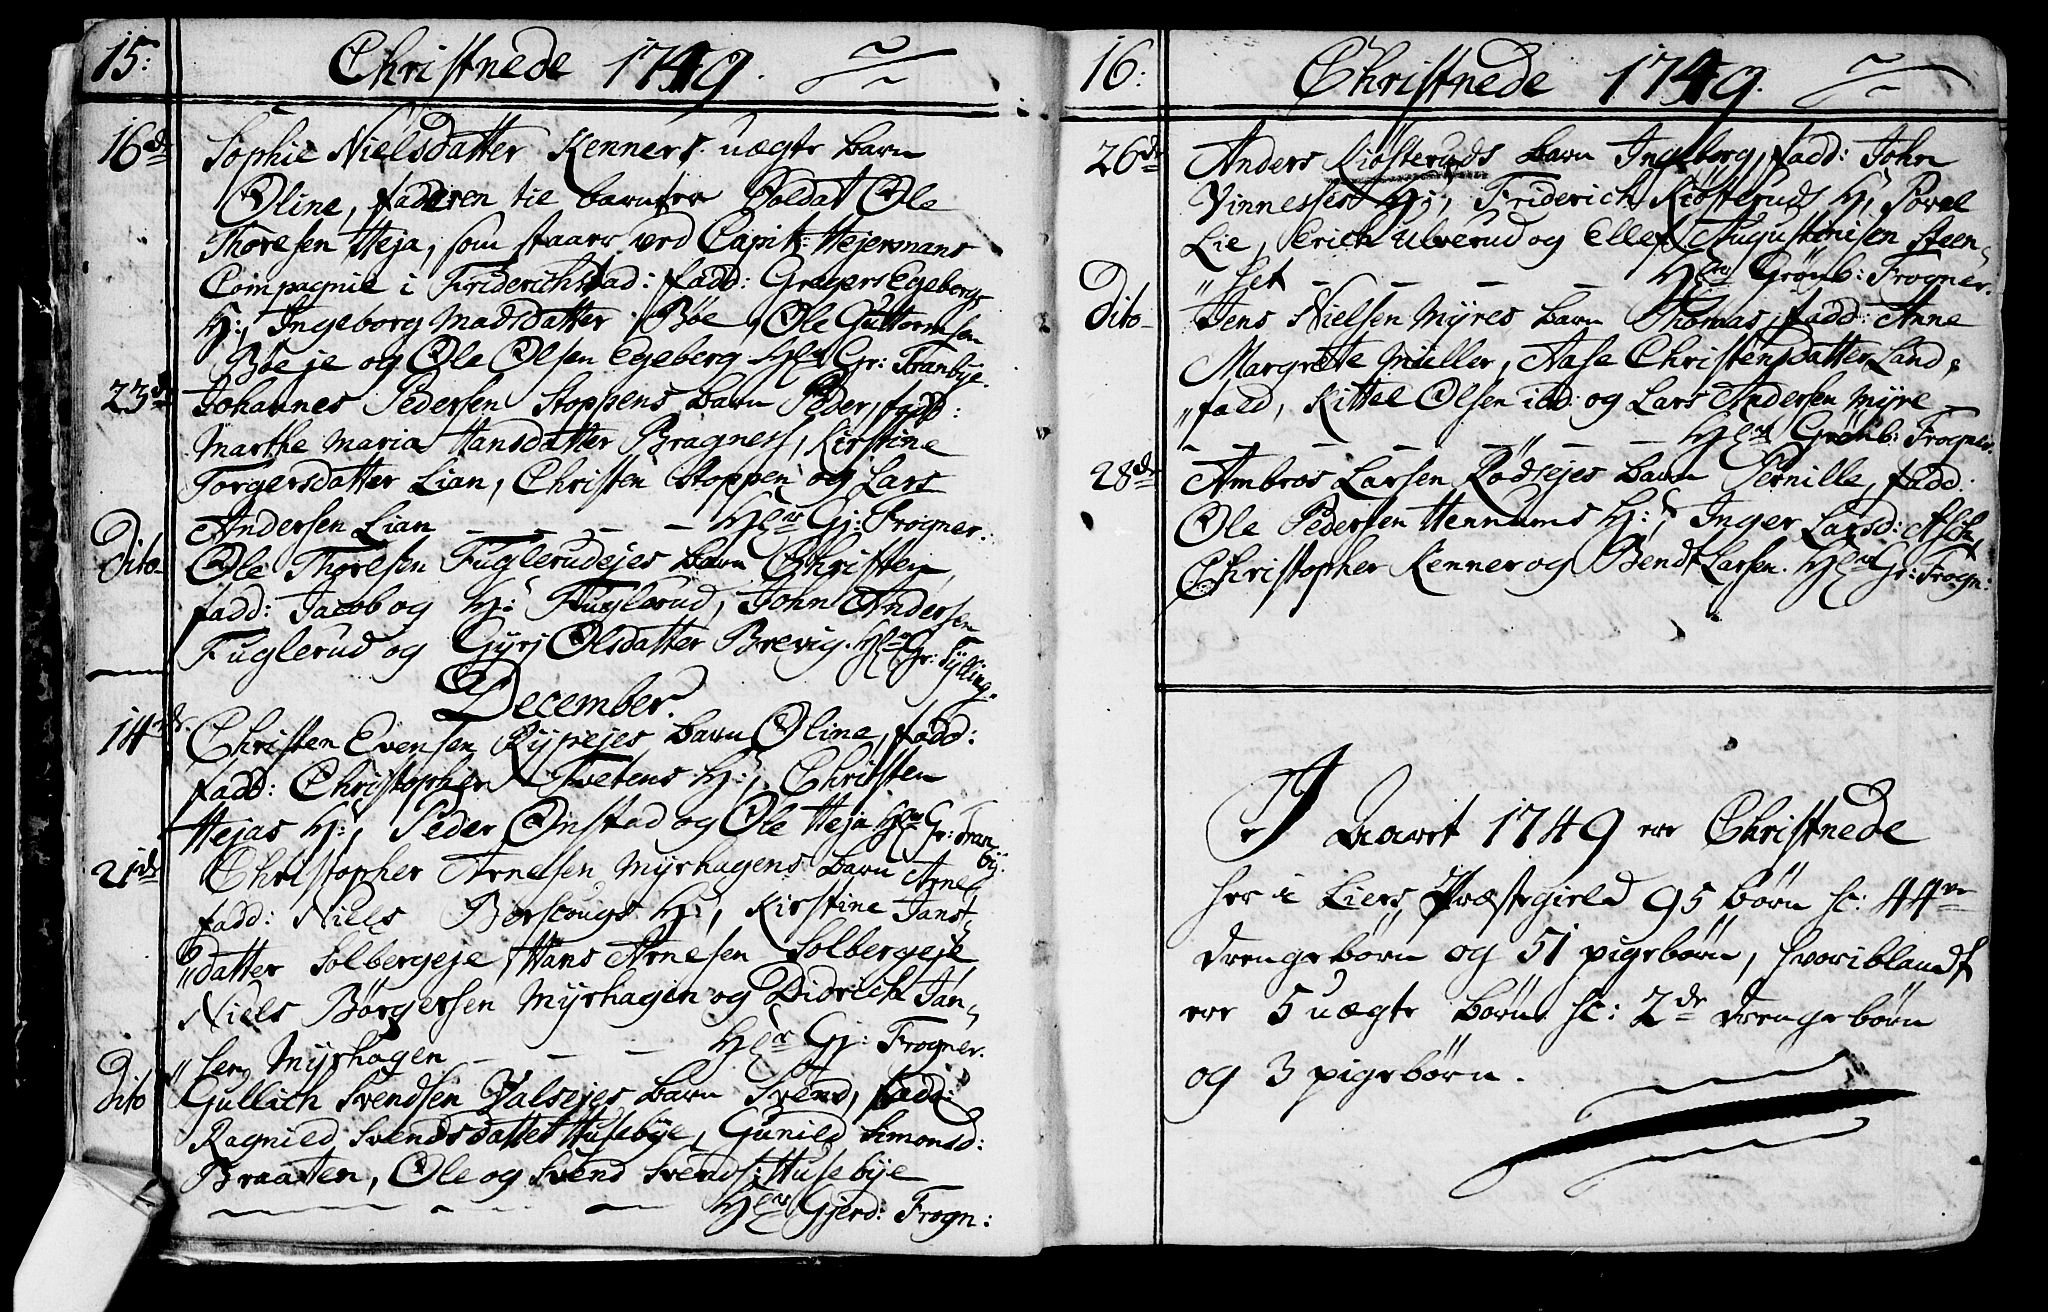 15: Christnede 1749.
16de Sophie Nielsdatter Kenners uægte barn
Oline, faderen til barnet er Soldat Ole
Thoresen Heja, som staar ved Capit: Hejermans
Compagnie i Friderichstad: fadd: Gregers Egebergs
H:, Ingeborg Madsdatter Bøe, Ole Guttormsen
Bøeje og Ole Olsen Egeberg Hr Gr: Franbye.
23de Johannes Pedersen Stoppens barn Peder, fadd:
Marthe Maria Hansdatter Bragness, Kirstine
Torgersdatter Lian, Christen Stoppen og Lars
Andersen Lian – – – – Hr Gj: Frogner.
Dito Ole Thoresen Fuglerudejes barn Christen,
fadd: Jacob og H: Fuglerud, John Andersen
Fuglerud og Gyri Olsdatter Brevig. Hr Gr: Sylling.
December.
14de Christen Evensen Rypejes barn Oline, fadd:
fadd: Christopher Tvetens H:, Christen
Hejas H:, Peder Onstad og Ole Heja Hr Gr: Franbÿ.
21de Christopher Arnesen Myrhagens barn Arne,
fadd: Niels Borscougs H:, Kirstine Jans-
"datter Solbergeje, Hans Arnesen Solbergeje,
Niels Børgersen Myrhagen og Didrich Jan-
"sen Myrhagen – – – Hr Gj: Frogner.
Dito Gullich Svendsen Valsejes barn Svend, fadd:
Ragnild Svendsdatter Husebye, Gunild Simonsd:
Braaten, Ole og Svend Svends: Husebye
Hr Gjerd: Frogn:
16: Christnede 1749.
26de Anders Kiøsteruds barn Ingeborg, fadd: John
Vinnesses H:, Friderich Kiøsteruds H, Povel
Lie, Erich Ulverud og Ellef Augustinisen Steen-
"set – – – – Hr Grönb: Frogner.
Dito Jens Nielsen Myres barn Thomas, fadd: Anne
Margrete Müller, Aase Christensdatter Land-
"fald, Kittel Olsen ibd: og Lars Andersen Myre
– – – – – Hr Grönb: Frogner.
28de Ambros Larsen Rödsejes barn Pernille, fadd:
Ole Pedersen Hennums H:, Inger Larsd: Ask,
Christopher Kenner og Bendt Larsen. Hr Gr: Frogn:
I Aaret 1749 er Christnede
her i Liers Præstegield 95 børn sc: 44re
drengebørn og 51 pigebørn, hvoriblandt
er 5 uægte børn sc: 2de drengebørn
og 3 pigebørn.